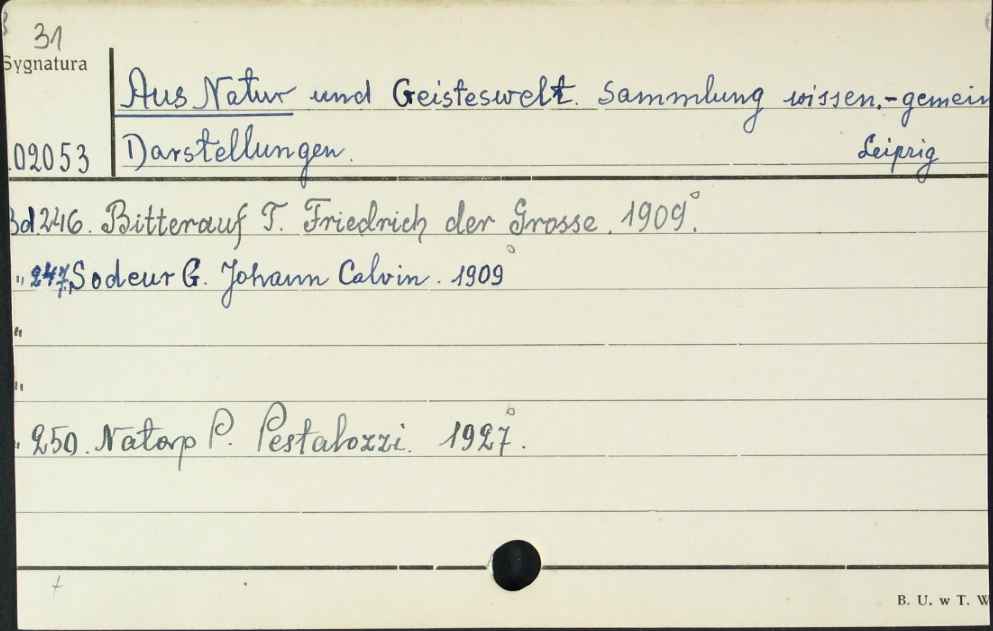 31
Sygnatura
Aus Natur und Geisteswelt. Sammlung wissen.-gemein
02053 Darstellungen. Leipzig
Bd.246. Bitterauf T. Friedrich der Grosse. 1909.
" 247. Sodeur G. Johann Calvin. 1909
"
"
" 250. Natorp P. Pestalozzi. 1927.
B. U. w T. W